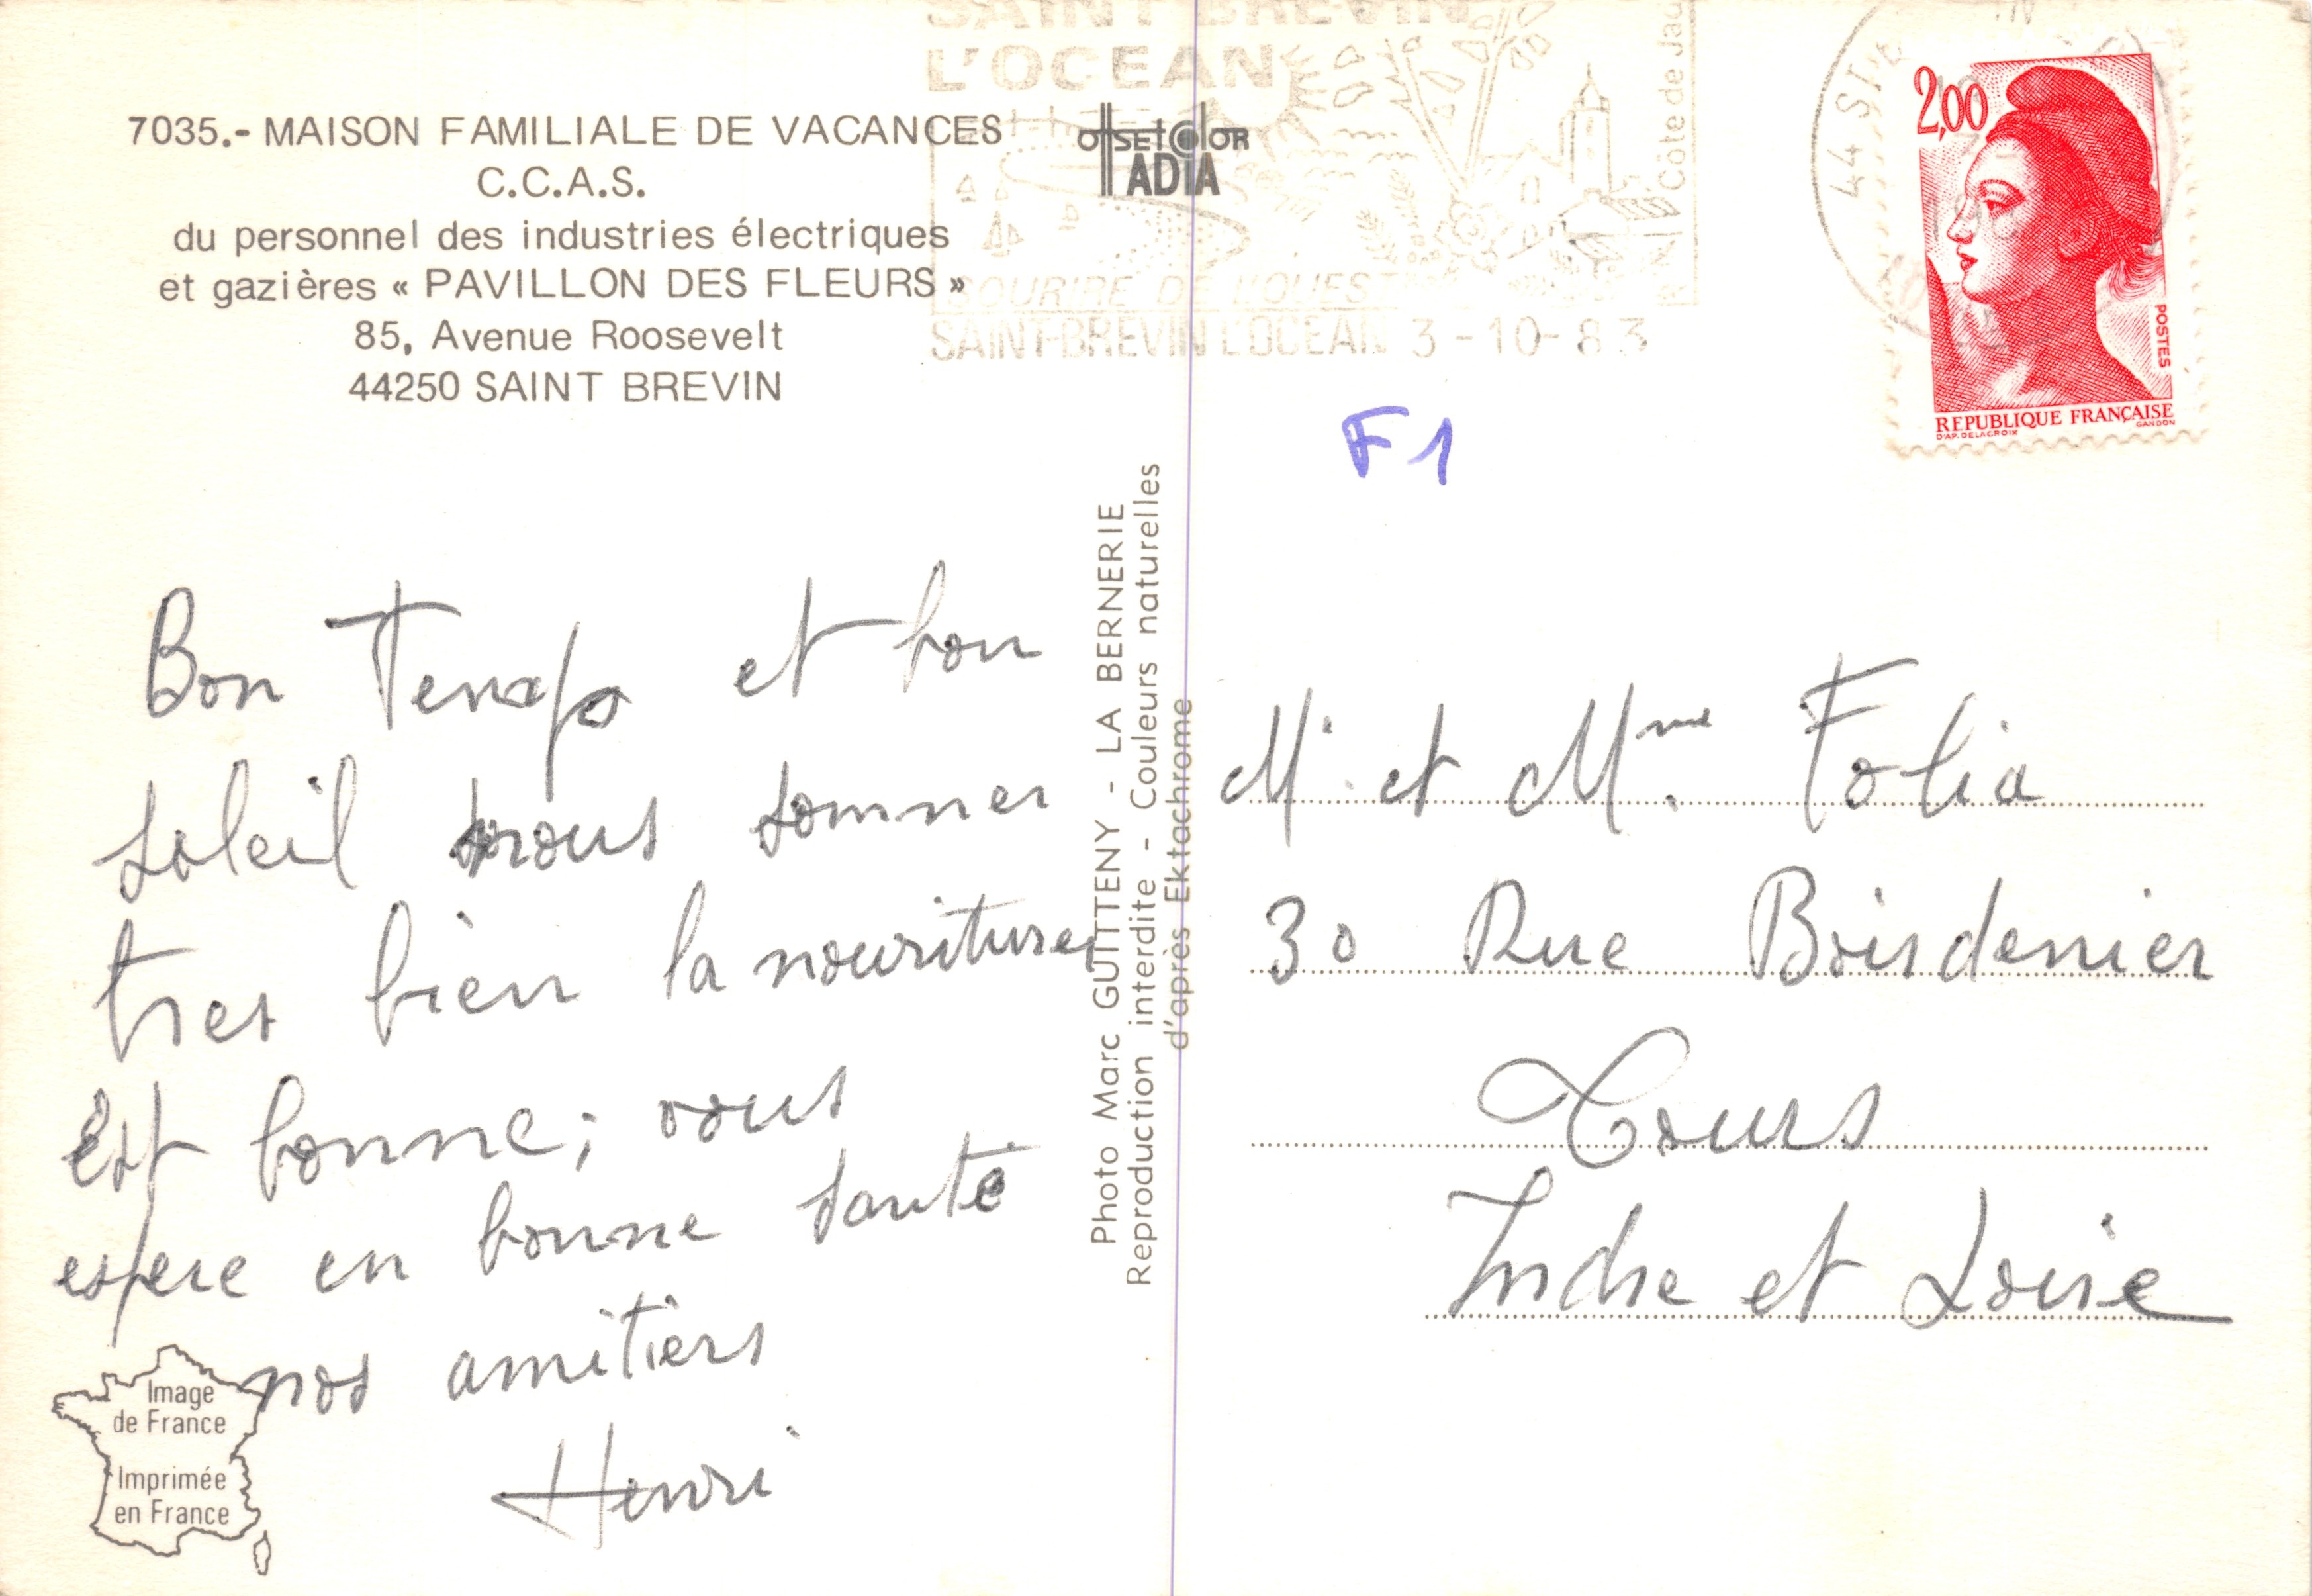 7035.- MAISON FAMILIALE DE VACANCES
C.C.A.S.
du personnel des industries électriques
et gazières « PAVILLON DES FLEURS »
85, Avenue Roosevelt
44250 SAINT BREVIN
Bon Temps et bon
soleil nous sommes
tres bien la nouriture
est bonne; vous
espere en bonne santé
nos amitiers
Henri
Image
de France
Imprimée
en France
offset color
ADIA
Photo Marc GUITTENY - LA BERNERIE
Reproduction interdite - Couleurs naturelles
d'après Ektachrome
SAINT-BREVIN
L'OCEAN
Côte de Jade
SOURIRE DE L'OUEST
SAINT-BREVIN L'OCEAN 3-10-83
44 ST
2,00
POSTES
REPUBLIQUE FRANÇAISE
D'AP. DELACROIX GANDON
F1
Mr. et Mme. Folia
30 Rue Boisdenier
Tours
Indre et Loire